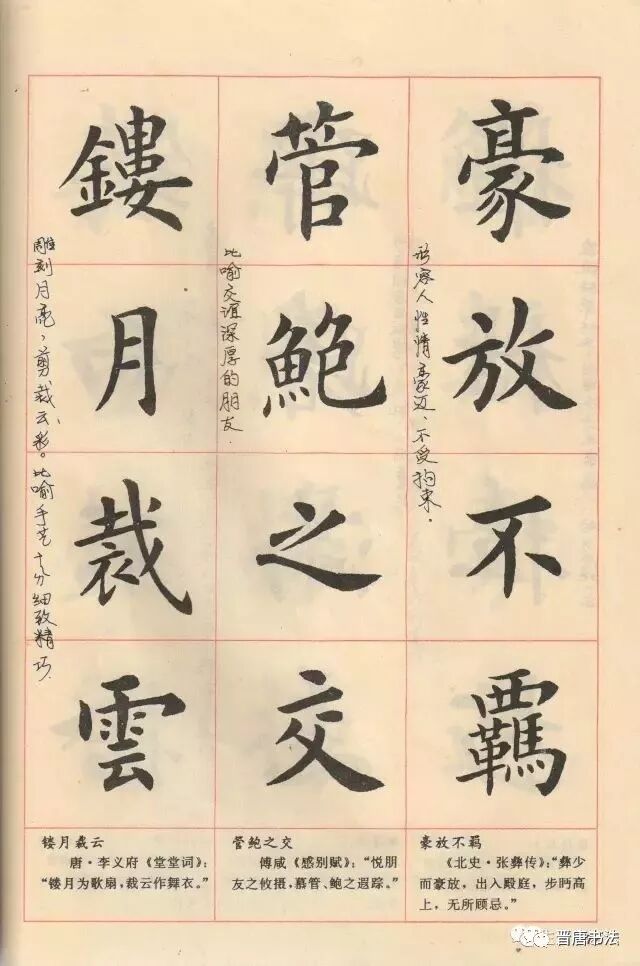 豪放不羈
形容人性情豪迈、不受拘束.
管鲍之交
比喻交谊深厚的朋友.
鏤月裁雲
雕刻月亮，剪裁云彩。比喻手艺十分细致精巧.
豪放不羁
《北史·张彝传》：“彝少
而豪放，出入殿庭，步眄高
上，无所顾忌。”
管鲍之交
傅咸《感别赋》：“悦朋
友之攸摄，慕管、鲍之遐踪。”
镂月裁云
唐·李义府《堂堂词》：
“镂月为歌扇，裁云作舞衣。”
晋唐书法